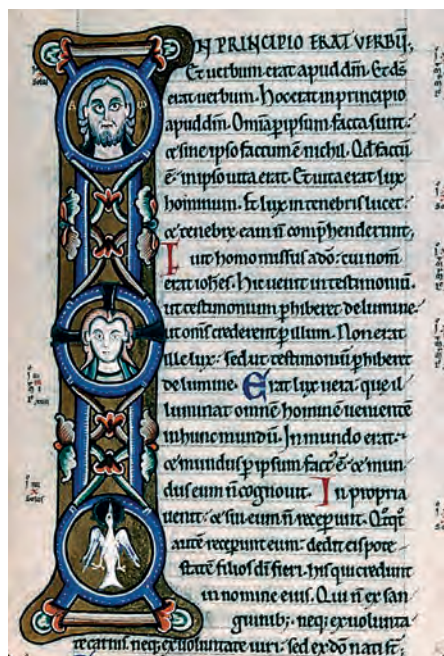 IN PRINCIPIO ERAT VERBŪ,
Et verbum erat apud dm̄. Et ds̄
erat uerbum. Hoc erat in principio
apud dm̄. Om̄ia p̱ ipsum facta sunt:
& sine ipso factum ē nichil. Qd̄ factū
ē in ipso uita erat. Et uita erat lux
hominum. Et lux in tenebris lucet
& tenebre eam n̄ comp̱henderunt,
Fuit homo missus a do̅: cui nom̄
erat ioh̄es. Hic uenit in testimoniū.
ut testimonium p̱hiberet de lumine.
ut om̄s crederent p̱ illum. Non erat
ille lux: sed ut testimoniū p̱hiberet
de lumine. Erat lux uera: que il
luminat omnē hominē uenientē
in hunc mundū. In mundo erat:
& mundus p̱ ipsum fact᾿ ē. & mun
dus eum n̄ cognouit. In propria
uenit: & sui eum n̄ receperunt. Qo̅tq̇t
autē receperunt eum: dedit eis pote
statē filios dī fieri. his qui credunt
in nomine eius. Qui n̄ ex san
guinib;. neq; ex uolunta
te carnis. neq; ex uoluntate uiri: sed ex do̅ nati st̄.
A ω